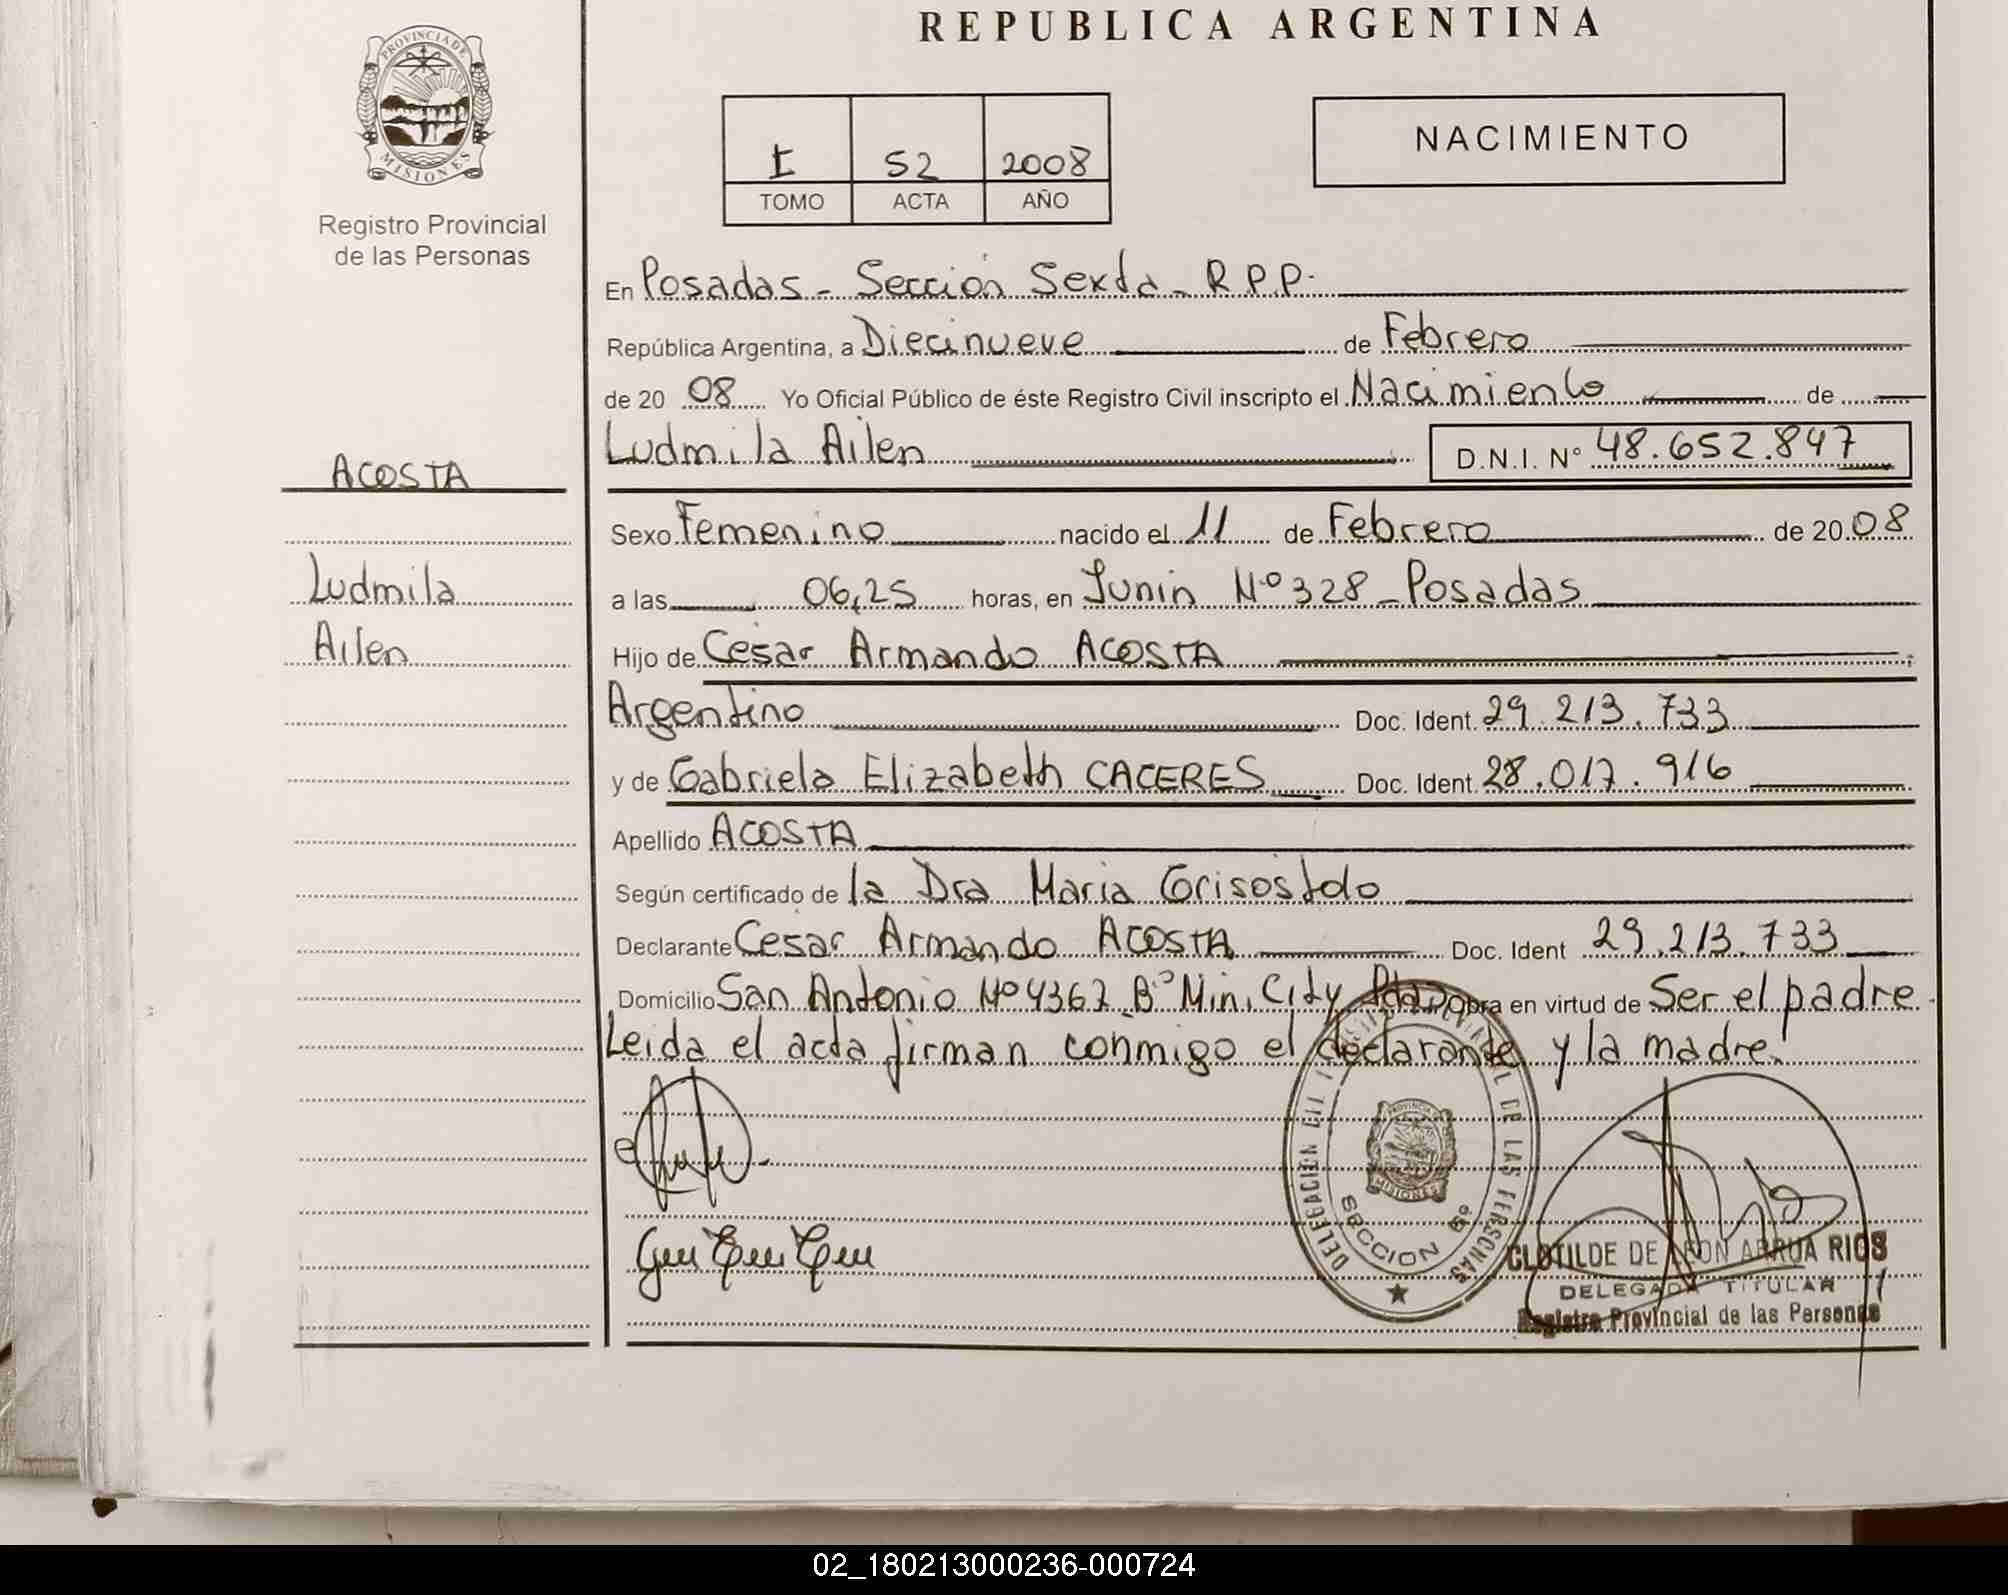 REPUBLICA ARGENTINA
PROVINCIA DE
MISIONES
Registro Provincial
de las Personas
I 52 2008
TOMO ACTA AÑO
NACIMIENTO
En Posadas - Sección Sexta - R.P.P.
República Argentina, a Diecinueve de Febrero
de 20 08 Yo Oficial Público de éste Registro Civil inscripto el Nacimiento de
Ludmila Ailen D.N.I. N° 48.652.847
ACOSTA
Ludmila
Ailen
Sexo Femenino nacido el 11 de Febrero de 20 08
a las 06,25 horas, en Junin N° 328 - Posadas
Hijo de Cesar Armando ACOSTA
Argentino Doc. Ident. 29.213.733
y de Gabriela Elizabeth CACERES Doc. Ident. 28.017.916
Apellido ACOSTA
Según certificado de la Dra Maria Grisostolo
Declarante Cesar Armando ACOSTA Doc. Ident 29.213.733
Domicilio San Antonio N° 4367 B° Mini City Pdas Obra en virtud de Ser el padre.
Leida el acta firman conmigo el declarante y la madre.
PROVINCIAL DE LAS PERSONAS
SECCION 6°
MISIONES
CLOTILDE DE LEON ARRUA RIOS
DELEGADA TITULAR
Registro Provincial de las Personas
02_180213000236-000724